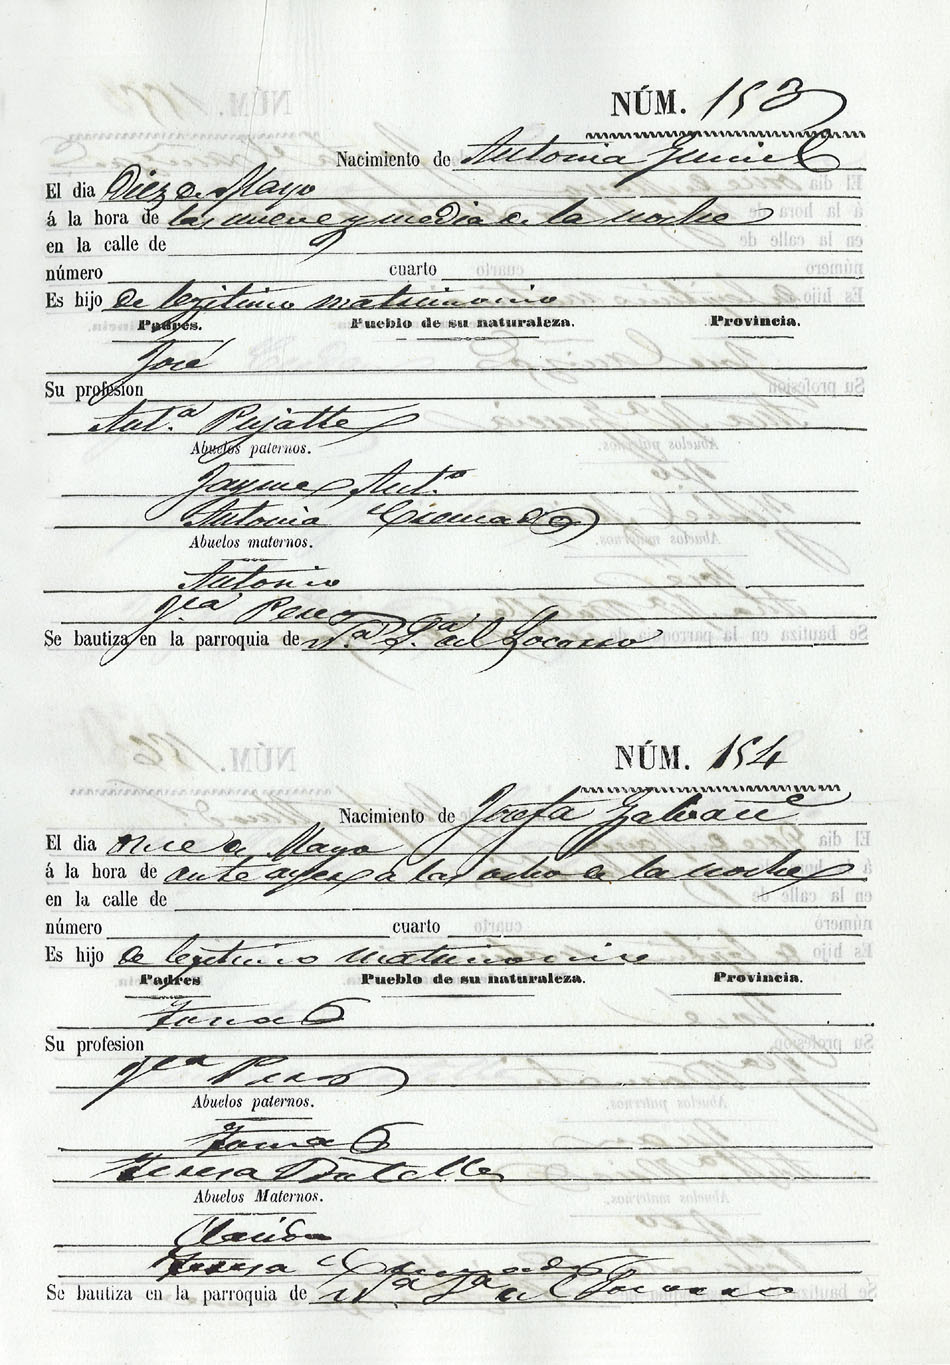 NÚM. 153
Nacimiento de Antonia
El dia Diez de Mayo
á la hora de las nueve y media de la noche
en la calle de
número cuarto
Es hijo de legitimo matrimonio
Padres. Pueblo de su naturaleza. Provincia.
José
Su profesion
Ant.ª Pujalte
Abuelos paternos.
Jayme Ant.º
Antonia
Abuelos maternos.
Antonio
Jfa Perez
Se bautiza en la parroquia de Nª Sª del Socorro
NÚM. 154
Nacimiento de Josefa Galvañ
El dia once de Mayo
á la hora de ante ayer a las ocho de la noche
en la calle de
número cuarto
Es hijo de legitimo matrimonio
Padres Pueblo de su naturaleza. Provincia.
Tomas
Su profesion
Jfa Perez
Abuelos paternos.
Tomas
Teresa Botella
Abuelos Maternos.
Teresa
Se bautiza en la parroquia de Nª Sª del Socorro